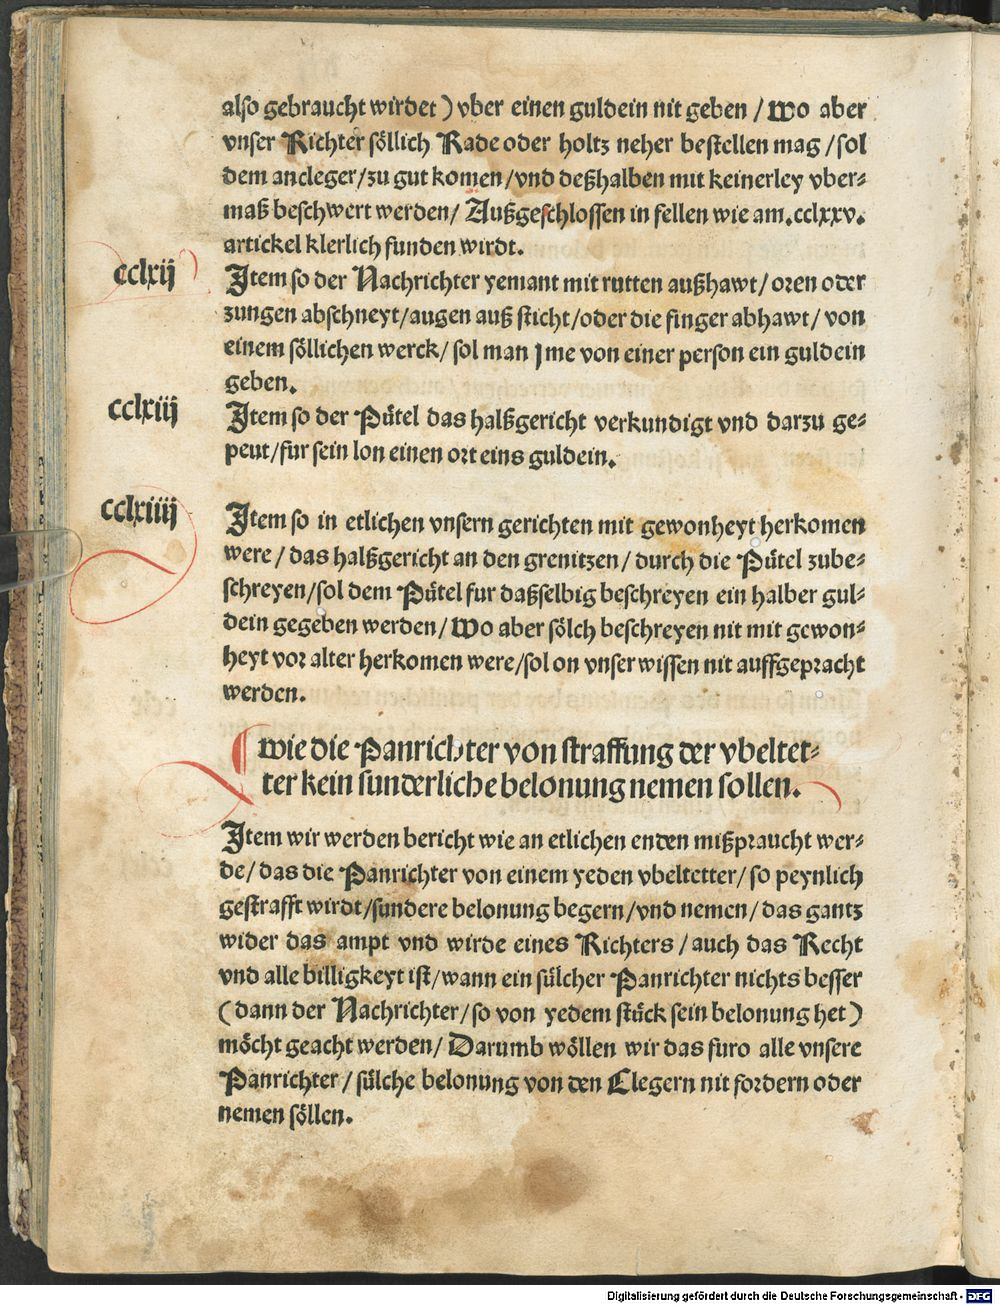 also gebraucht wirdet) vber einen guldein nit geben / Wo aber
vnser Richter söllich Rade oder holtz neher bestellen mag / sol
dem ancleger / zu gut komen / vnd deßhalben mit keinerley vber⸗
maß beschwert werden / Außgeschlossen in fellen wie am .cclxxv.
artickel klerlich funden wirdt.
cclxij
Item so der Nachrichter yemant mit rutten außhawt / oren oder
zungen abschneyt / augen auß sticht / oder die finger abhawt / von
einem söllichen werck / sol man jme von einer person ein guldein
geben.
cclxiij
Item so der Pütel das halßgericht verkundigt vnd darzu ge⸗
peut / fur sein lon einen ort eins guldein.
cclxiiij
Item so in etlichen vnsern gerichten mit gewonheyt herkomen
were / das halßgericht an den grenitzen / durch die Pütel zube⸗
schreyen / sol dem Pütel fur daßselbig beschreyen ein halber gul⸗
dein gegeben werden / Wo aber sölch beschreyen nit mit gewon⸗
heyt vor alter herkomen were / sol on vnser wissen nit auffgepracht
werden.
¶ Wie die Panrichter von straffung der vbeltet⸗
ter kein sunderliche belonung nemen sollen.
Item wir werden bericht wie an etlichen enden mißpraucht wer⸗
de / das die Panrichter von einem yeden vbeltetter / so peynlich
gestrafft wirdt / sundere belonung begern / vnd nemen / das gantz
wider das ampt vnd wirde eines Richters / auch das Recht
vnd alle billigkeyt ist / wann ein sülcher Panrichter nichts besser
(dann der Nachrichter / so von yedem stück sein belonung het)
möcht geacht werden / Darumb wöllen wir das furo alle vnsere
Panrichter / sülche belonung von den Clegern nit fordern oder
nemen söllen.
Digitalisierung gefördert durch die Deutsche Forschungsgemeinschaft - DFG